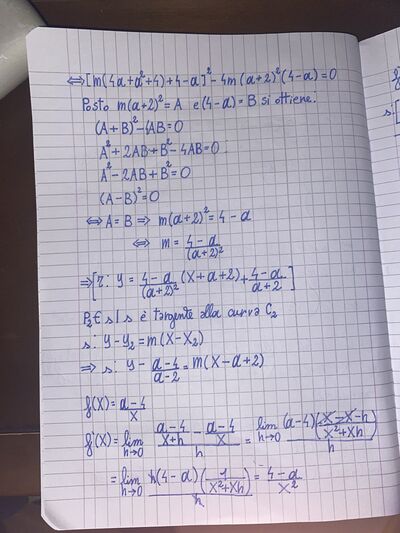 ⇔ [m(4a+a²+4)+4-a]² - 4m(a+2)²(4-a)=0
Posto m(a+2)² = A e (4-a) = B si ottiene:
(A+B)² - 4AB=0
A² + 2AB + B² - 4AB=0
A² - 2AB + B² = 0
(A-B)² = 0
⇔ A = B ⇒ m(a+2)² = 4 - a
⇔ m = (4-a)/(a+2)²
⇒ [r: y = (4-a)/(a+2)² (x+a+2) + (4-a)/(a+2)]
P₂ ∈ s | s è tangente alla curva C₂
s: y - y₂ = m(x-x₂)
⇒ s: y - (a-4)/(a-2) = m(x-a+2)
f(x) = (a-4)/x
f'(x) = lim h→0 ((a-4)/(x+h) - (a-4)/x)/h = lim h→0 (a-4)((x-x-h)/(x²+xh))/h
= lim h→0 h(4-a)(1/(x²+xh))/h = (4-a)/x²